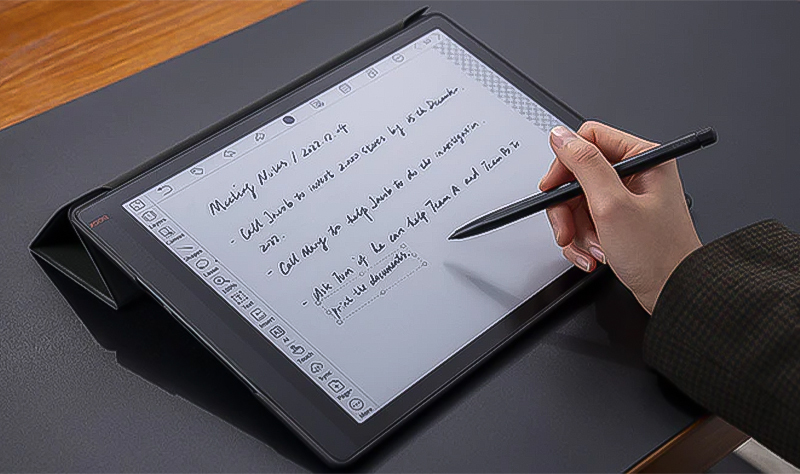 Meeting Notes / 2022.12.4
- Call Jacob to invest 2.000 stores by 15th December.
2022.
- Call Mary to help Jacob to do the investigation.
- Ask Tom if he can help Team A and Team B to
print the documents.
BOOX
Layers
Canvas
Shapes
Lasso
100%
Text
Insert
AI
Touch
Sync
Page
More